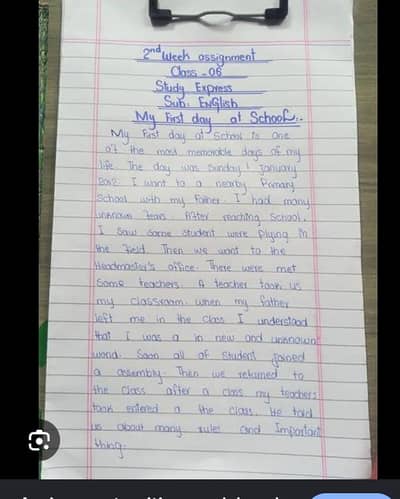 2nd Week assignment
Class - 06
Study Express
Sub: English
My First day at School..
My First day at School is one
of the most memorable days of my
life. The day was Sunday 1 January
I want to a nearby Primary
School with my Father. I had many
unknown Fears. After reaching School.
I Saw Some Student were Plying in
the Field. Then we want to the
Headmaster's office. There were met
Some teachers. A teacher took us
my classroom. when my father
left me in the Class I understood
that I was a in new and unknown
world. Soon all of Student joined
a assembly. Then we returned to
the Class after a class my teachers
took entered a the Class. He told
us about many rules and Important
thing.